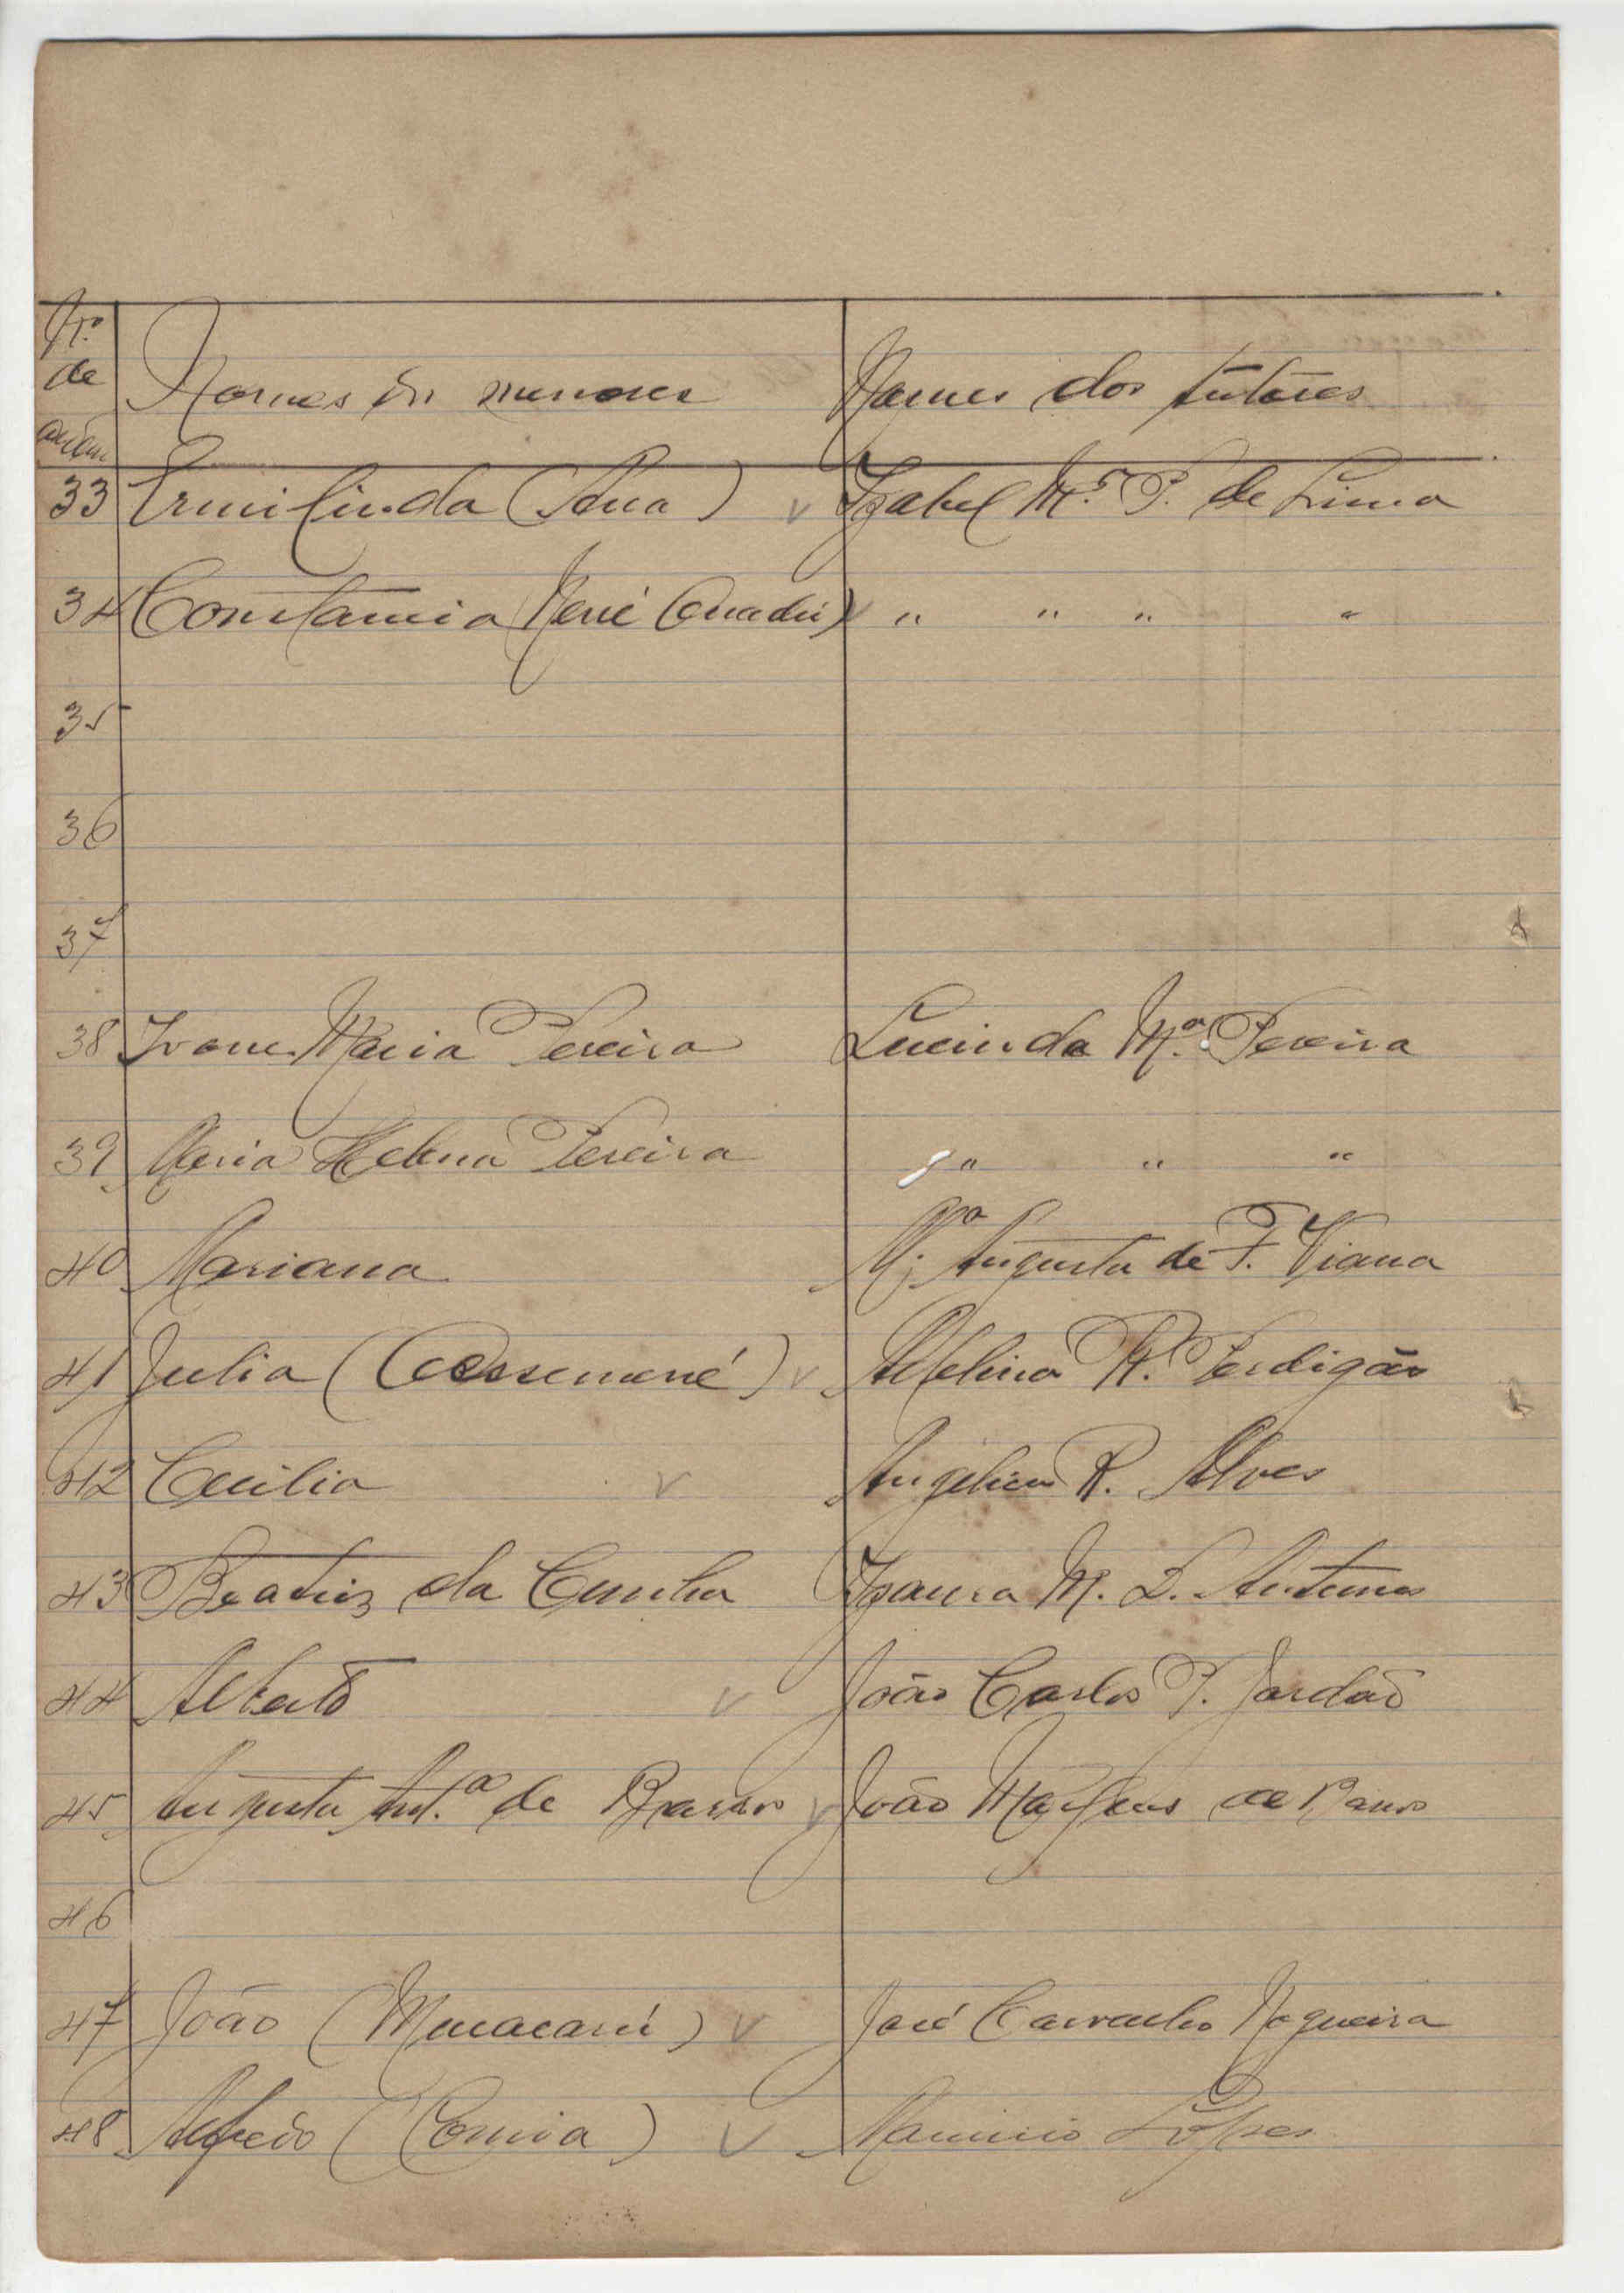 Nº
de
ordem
Nomes dos menores Nomes dos tutores
33 Ermilinda (Ana) v Izabel M.ª P. de Lima
34 Constancia Nené (Quadú) v " " " "
35
36
37
38 Ivone Maria Pereira Lucinda M.ª Pereira
39 Maria Helena Pereira " " "
40 Mariana M.ª Augusta de F. Viana
41 Julia (Cossemené) v Adelina R. Perdigão
42 Cecilia v Angelica R. Alves
43 Beatriz da Cunha Izaura M. L. Antunes
44 Alberto v João Carlos P. Jardão
45 Augusta Ant.ª de Barros v João Martins de Barros
46
47 João (Mucacarú) v José Carvalho Nogueira
48 Alfredo (Comia) v Mauricio Lopes